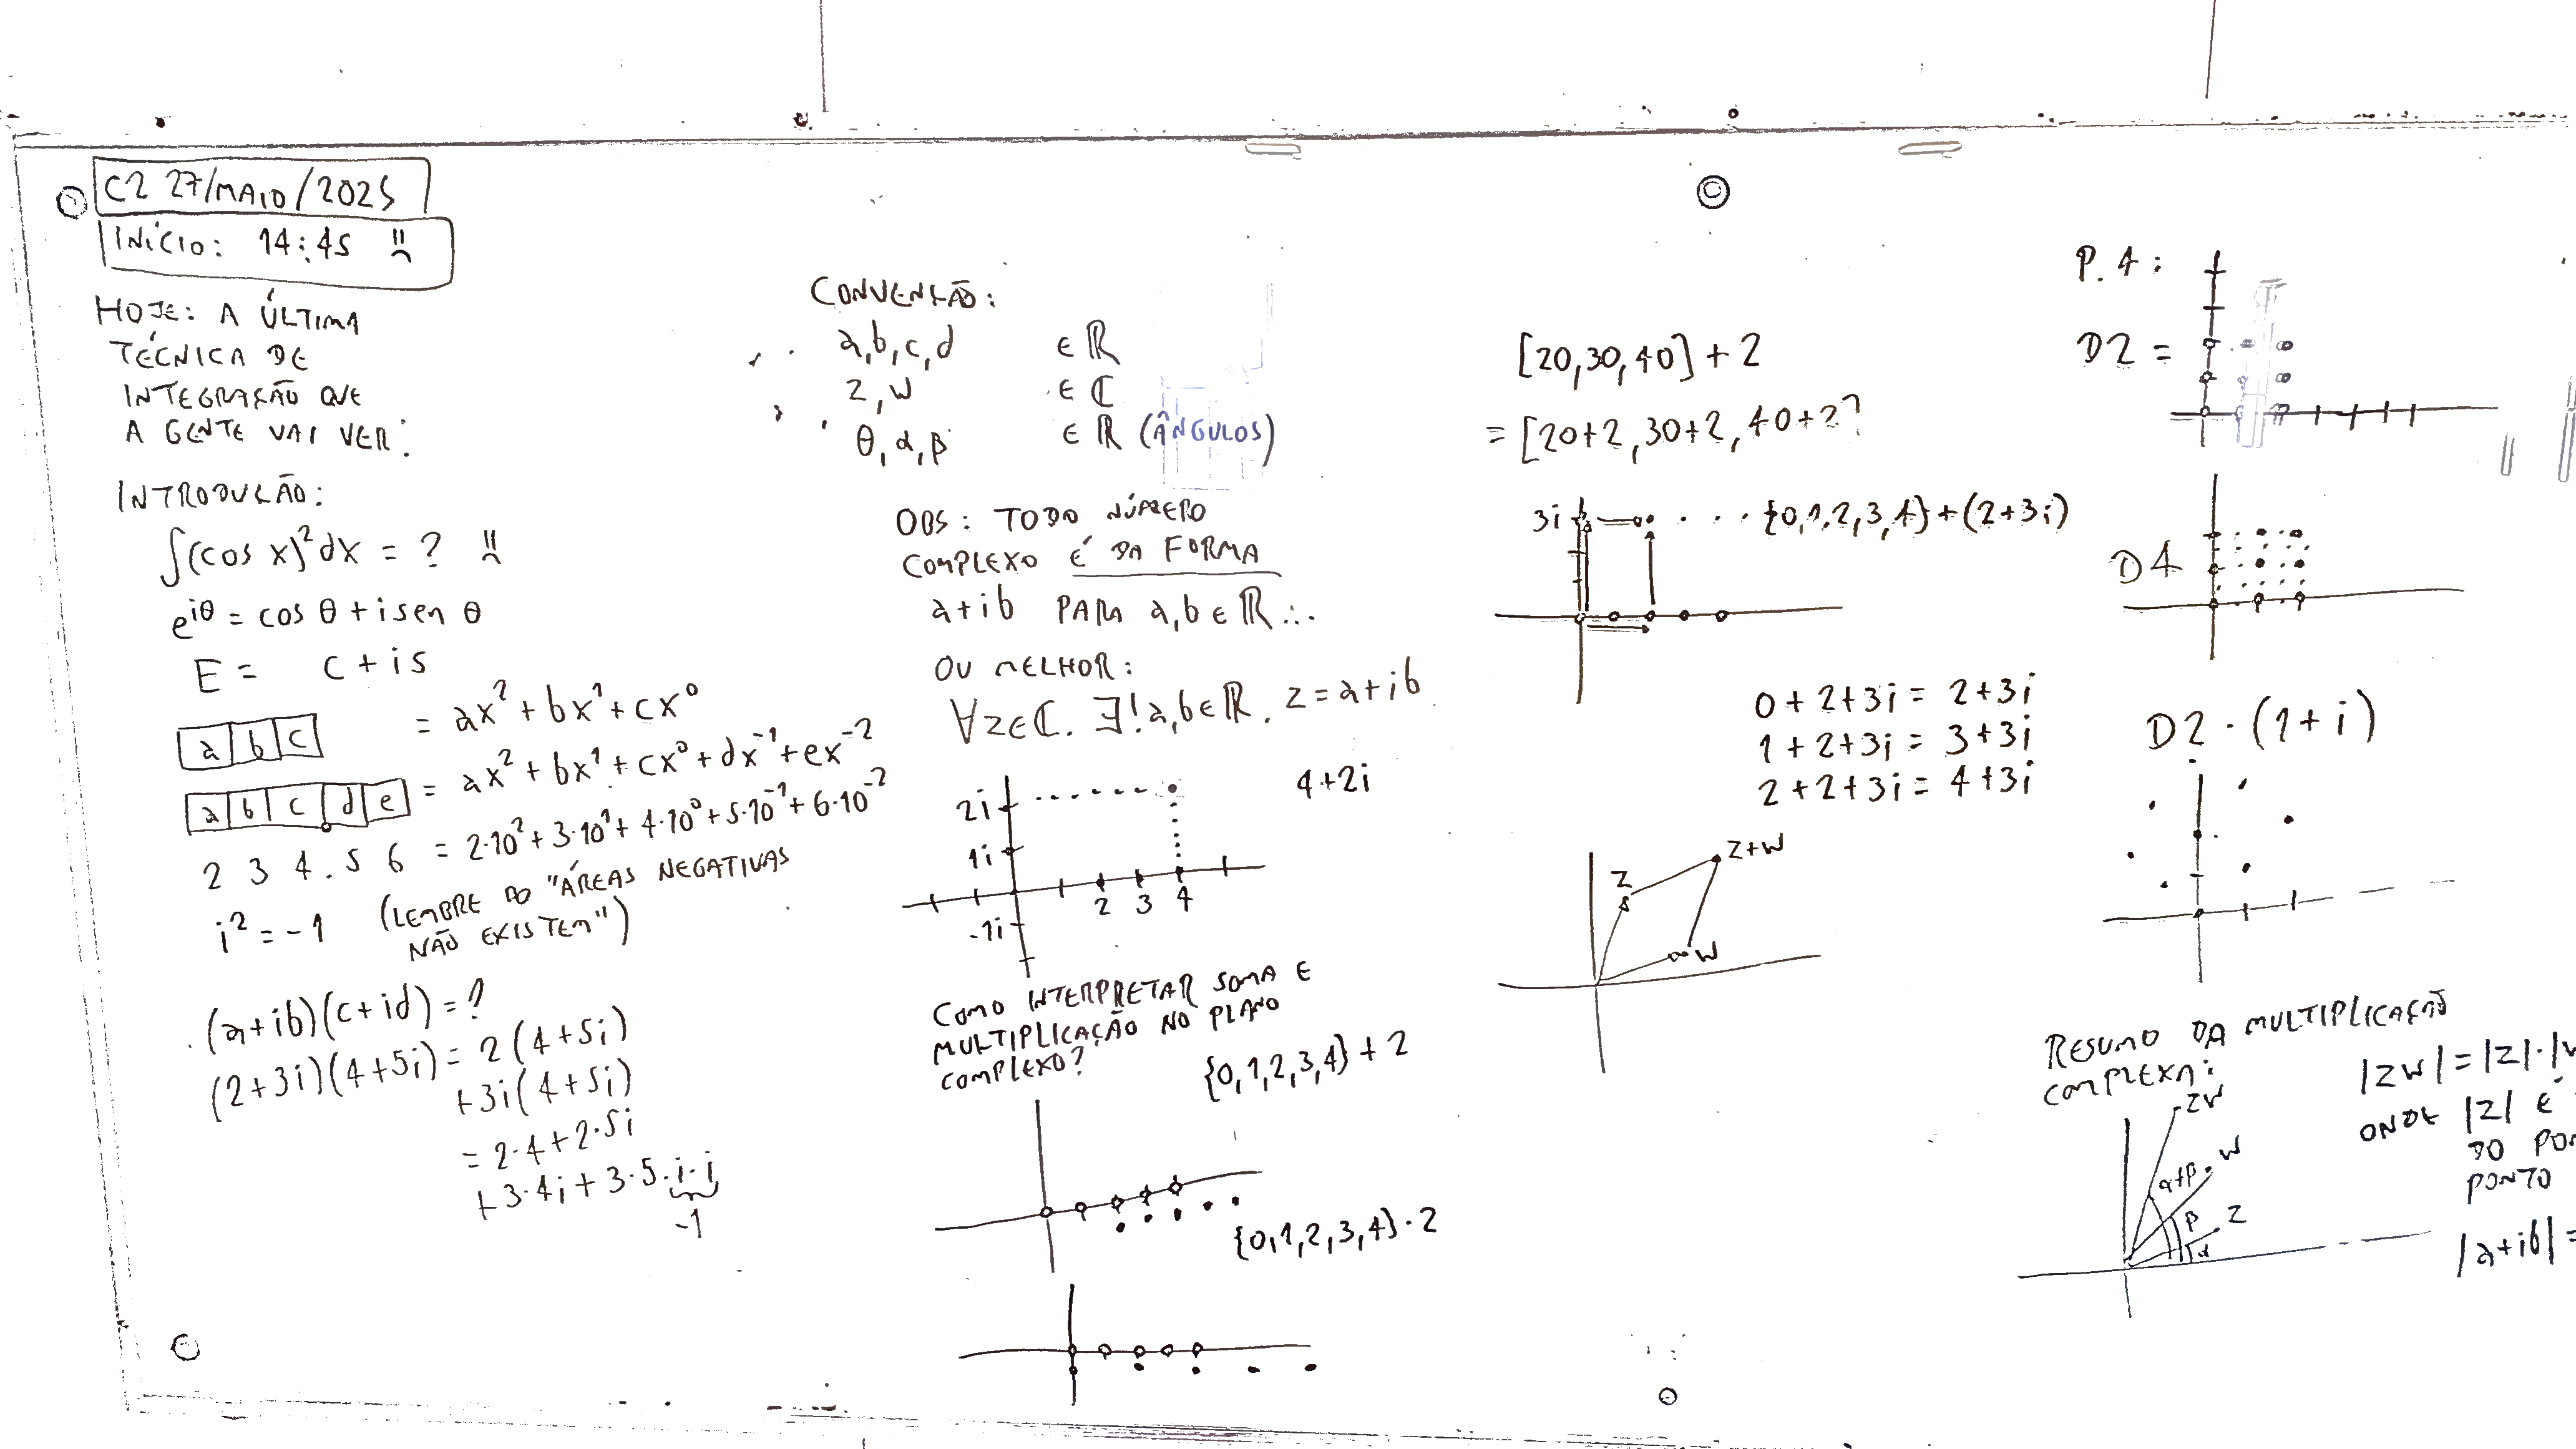 C2 27/MAIO/2025
INÍCIO: 14:45
HOJE: A ÚLTIMA
TÉCNICA DE
INTEGRAÇÃO QUE
A GENTE VAI VER!
INTRODUÇÃO:
∫(cos x)² dx = ?
e^{iθ} = cos θ + i sen θ
E = c + is
a b c = ax² + bx¹ + cx⁰
a b c . d e = ax² + bx¹ + cx⁰ + dx⁻¹ + ex⁻²
2 3 4 . 5 6 = 2·10² + 3·10¹ + 4·10⁰ + 5·10⁻¹ + 6·10⁻²
i² = -1 (LEMBRE DO "ÁREAS NEGATIVAS
NÃO EXISTEM")
(a+ib)(c+id) = ?
(2+3i)(4+5i) = 2(4+5i)
+3i(4+5i)
= 2·4 + 2·5i
+ 3·4i + 3·5·i·i
-1
CONVENÇÃO:
a,b,c,d ∈ ℝ
z,w ∈ ℂ
θ,α,β ∈ ℝ (ÂNGULOS)
OBS: TODO NÚMERO
COMPLEXO É DA FORMA
a+ib PARA a,b ∈ ℝ ∴.
OU MELHOR:
∀z∈ℂ. ∃!a,b∈ℝ. z = a+ib
4+2i
2i
1i
2 3 4
-1i
COMO INTERPRETAR SOMA E
MULTIPLICAÇÃO NO PLANO
COMPLEXO?
{0,1,2,3,4} + 2
{0,1,2,3,4} · 2
[20,30,40] + 2
= [20+2, 30+2, 40+2]
3i
{0,1,2,3,4} + (2+3i)
0 + 2+3i = 2+3i
1 + 2+3i = 3+3i
2 + 2+3i = 4+3i
z
z+w
w
P.4:
D2 =
D4
D2 · (1+i)
RESUMO DA MULTIPLICAÇÃO
COMPLEXA:
|zw| = |z|·|w
ONDE |z| É
DO
PONTO
|a+ib| =
zw
α+β
w
β
z
α